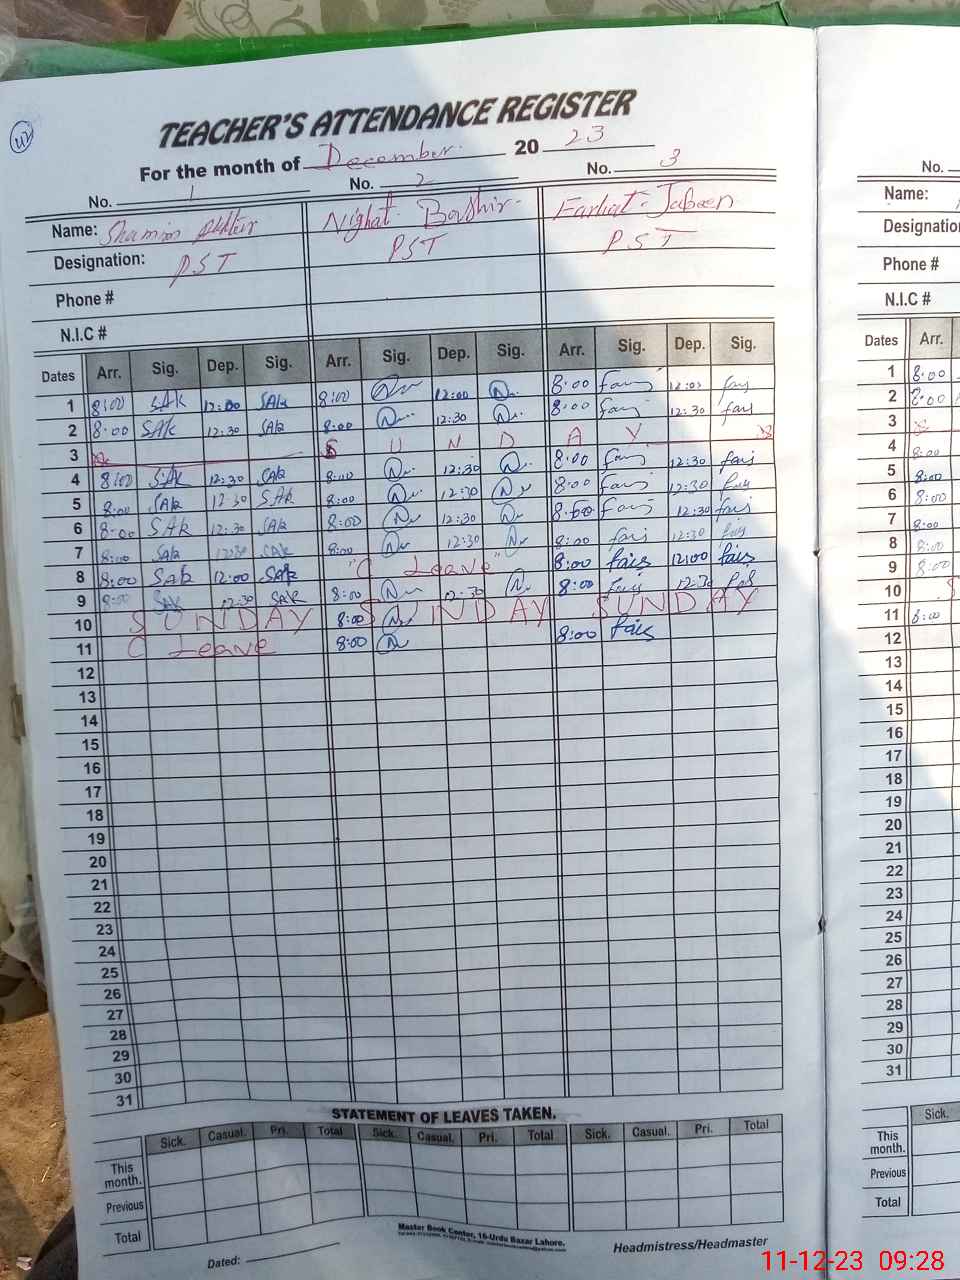 42
TEACHER'S ATTENDANCE REGISTER
For the month of December. 20 23
No. 1 No. 2 No. 3 No.
Name: Shamim Akhtir Nighat. Bashir. Farhat. Jabeen Name:
Designation: P.S.T P.S.T P.S.T
Phone # Phone #
N.I.C # N.I.C #
Dates Arr. Sig. Dep. Sig. Arr. Sig. Dep. Sig. Arr. Sig. Dep. Sig. Dates Arr.
1 8:00 SAK 12:00 SAK 8:00 12:00 8:00 12:00 1 8:00
2 8:00 SAK 12:30 SAK 8:00 12:30 8:00 12:30 2 8:00
3 S U N D A Y 3
4 8:00 SAK 12:30 SAK 8:00 12:30 8:00 12:30 4 8:00
5 8:00 SAK 12:30 SAK 8:00 12:30 8:00 12:30 5 8:00
6 8:00 SAK 12:30 SAK 8:00 12:30 8:00 12:30 6 8:00
7 8:00 SAK 12:30 SAK 8:00 12:30 8:00 12:30 7 8:00
8 8:00 SAK 12:00 SAK "C Leave" 8:00 12:00 8 8:00
9 8:00 SAK 12:30 SAK 8:00 12:30 8:00 12:30 9 8:00
10 SUNDAY 8:00 SUNDAY SUNDAY 10 S
11 C Leave 8:00 8:00 11 8:00
12 12
13 13
14 14
15 15
16 16
17 17
18 18
19 19
20 20
21 21
22 22
23 23
24 24
25 25
26 26
27 27
28 28
29 29
30 30
31 31
STATEMENT OF LEAVES TAKEN.
Sick. Casual. Pri. Total Sick. Casual. Pri. Total Sick. Casual. Pri. Total Sick.
This month. This month.
Previous Previous
Total Total
Master Book Center, 16-Urdu Bazar Lahore.
Dated: Headmistress/Headmaster
11-12-23 09:28